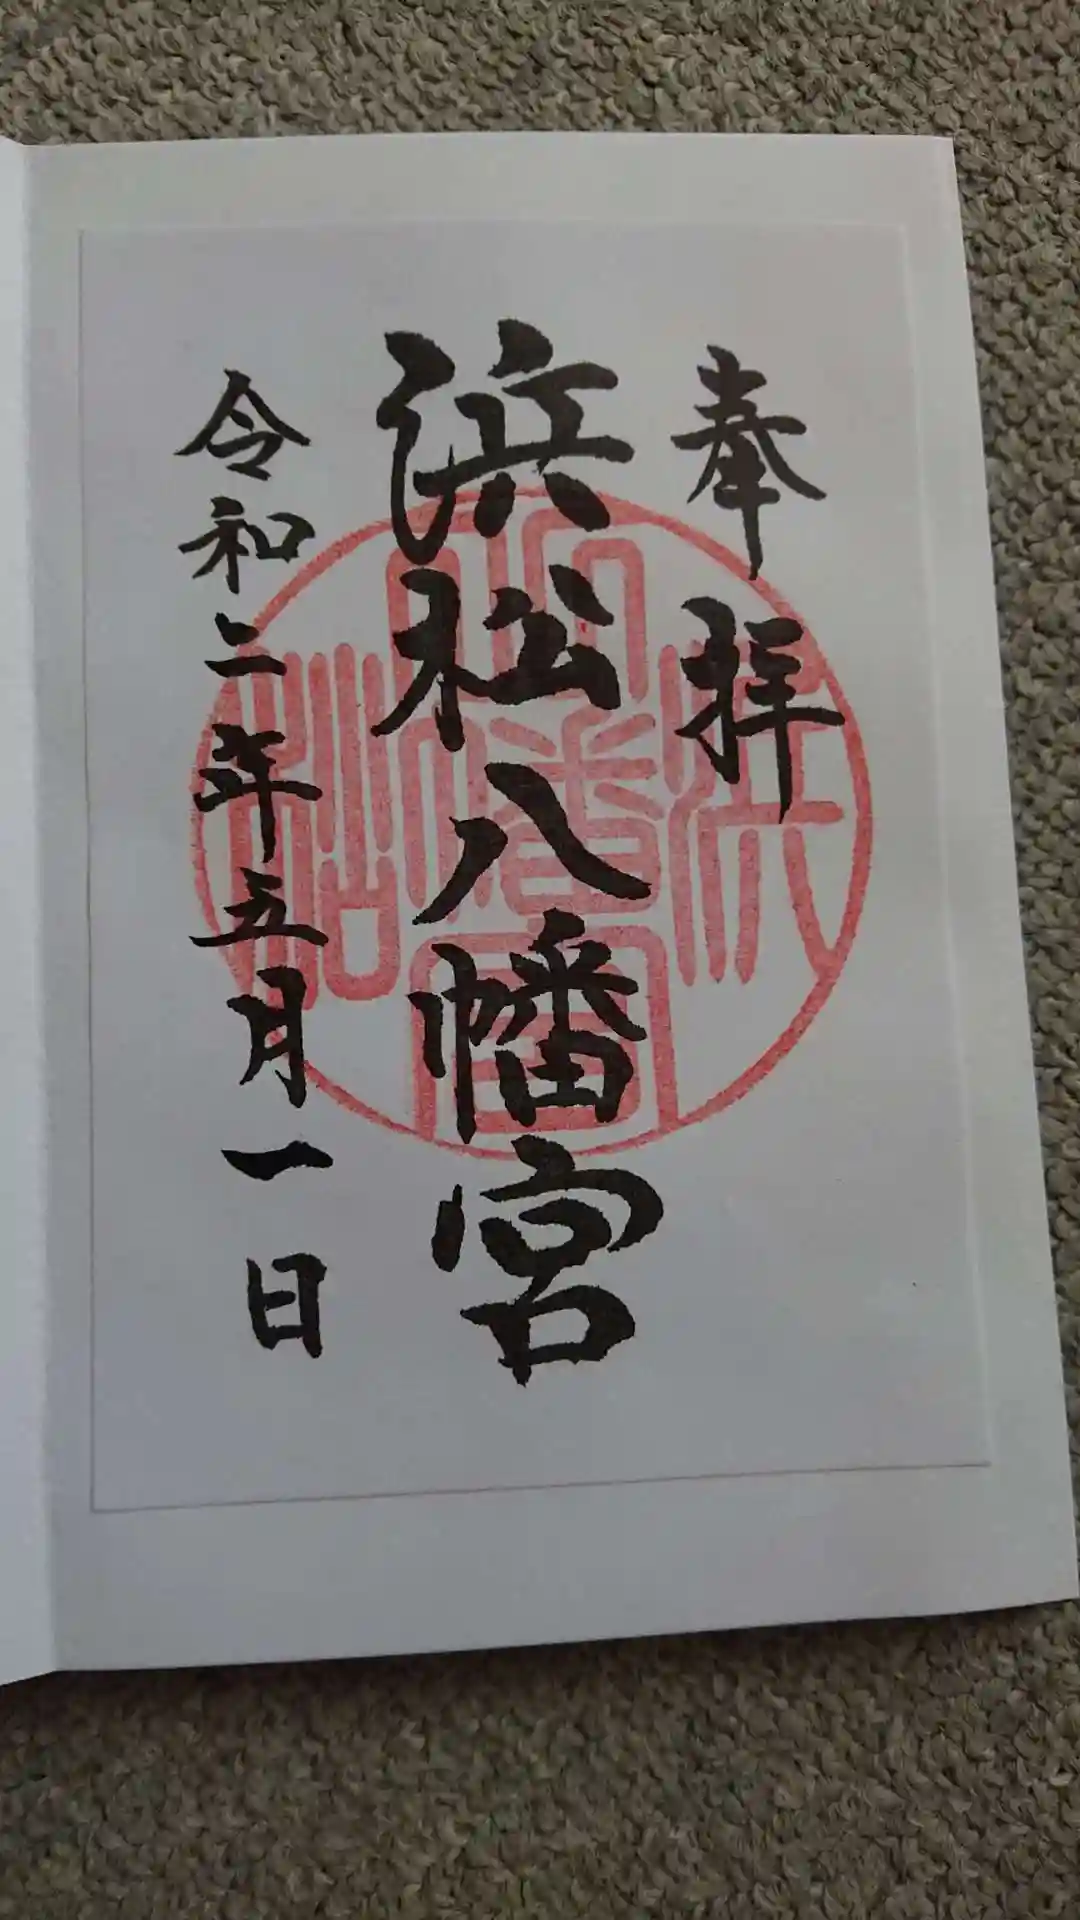 奉拝
浜松八幡宮
令和二年五月一日
浜松八幡宮